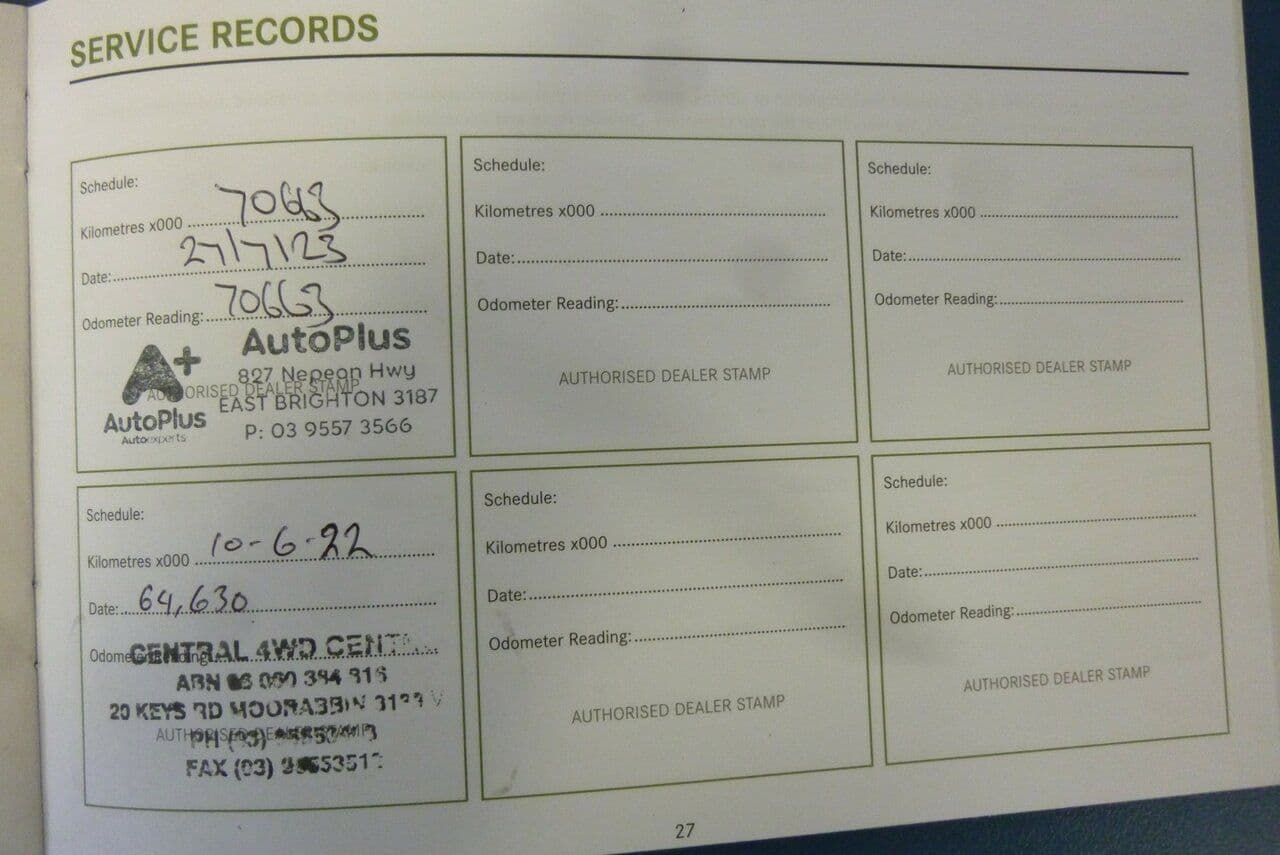 SERVICE RECORDS
Schedule:
Kilometres x000 70663
Date: 27/7/23
Odometer Reading: 70663
A+
AutoPlus
Autoexperts
AutoPlus
827 Nepean Hwy
AUTHORISED DEALER STAMP
EAST BRIGHTON 3187
P: 03 9557 3566
Schedule:
Kilometres x000
Date:
Odometer Reading:
AUTHORISED DEALER STAMP
Schedule:
Kilometres x000
Date:
Odometer Reading:
AUTHORISED DEALER STAMP
Schedule:
Kilometres x000 10-6-22
Date: 64,630
Odometer Reading:
CENTRAL 4WD
ABN
20 KEYS RD MOORABBIN
AUTHORISED DEALER STAMP
PH (03)
FAX (03)
Schedule:
Kilometres x000
Date:
Odometer Reading:
AUTHORISED DEALER STAMP
Schedule:
Kilometres x000
Date:
Odometer Reading:
AUTHORISED DEALER STAMP
27